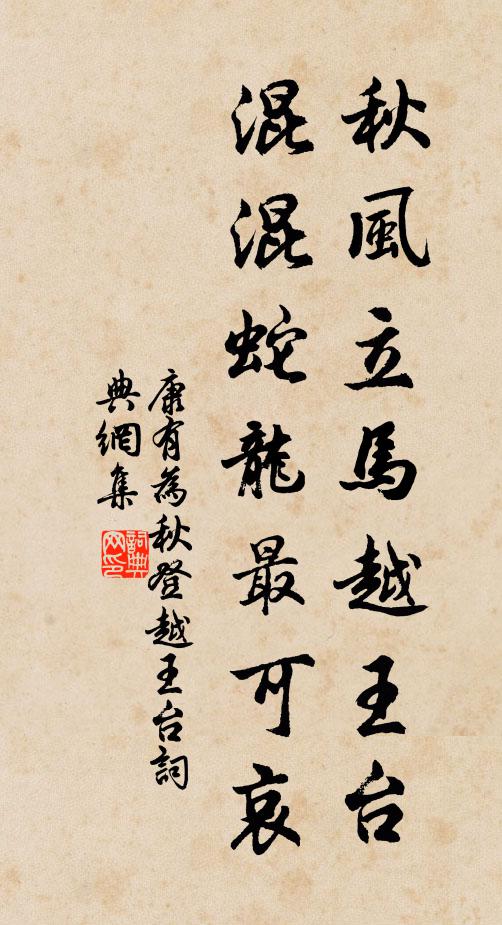 秋風立馬越王台
混混蛇龍最可哀
康有為秋登越王台詞
典網集
詞典网印